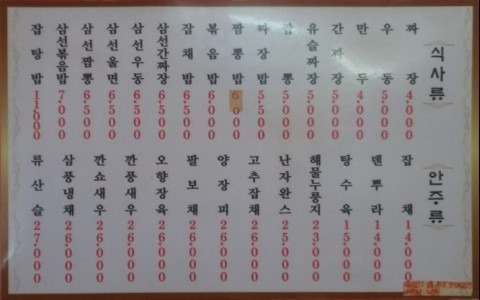 식사류
짜장 4.000
우동
만두
간짜장
유슬짜장 5.500
짬뽕
짜장밥 5.500
짬뽕밥 6.000
볶음밥 6.000
잡채밥 6.500
삼선간짜장 6.500
삼선우동 6.500
삼선울면 6.500
삼선짬뽕 6.500
삼선볶음밥 7.000
잡탕밥 11.000
안주류
잡채 14.000
덴뿌라 14.000
탕수육 15.000
해물누룽지 23.000
난자완스 25.000
고추잡채 26.000
양장피 26.000
팔보채 26.000
오향장육 26.000
깐풍새우 26.000
깐쇼새우 26.000
삼풍냉채 26.000
류산슬 27.000